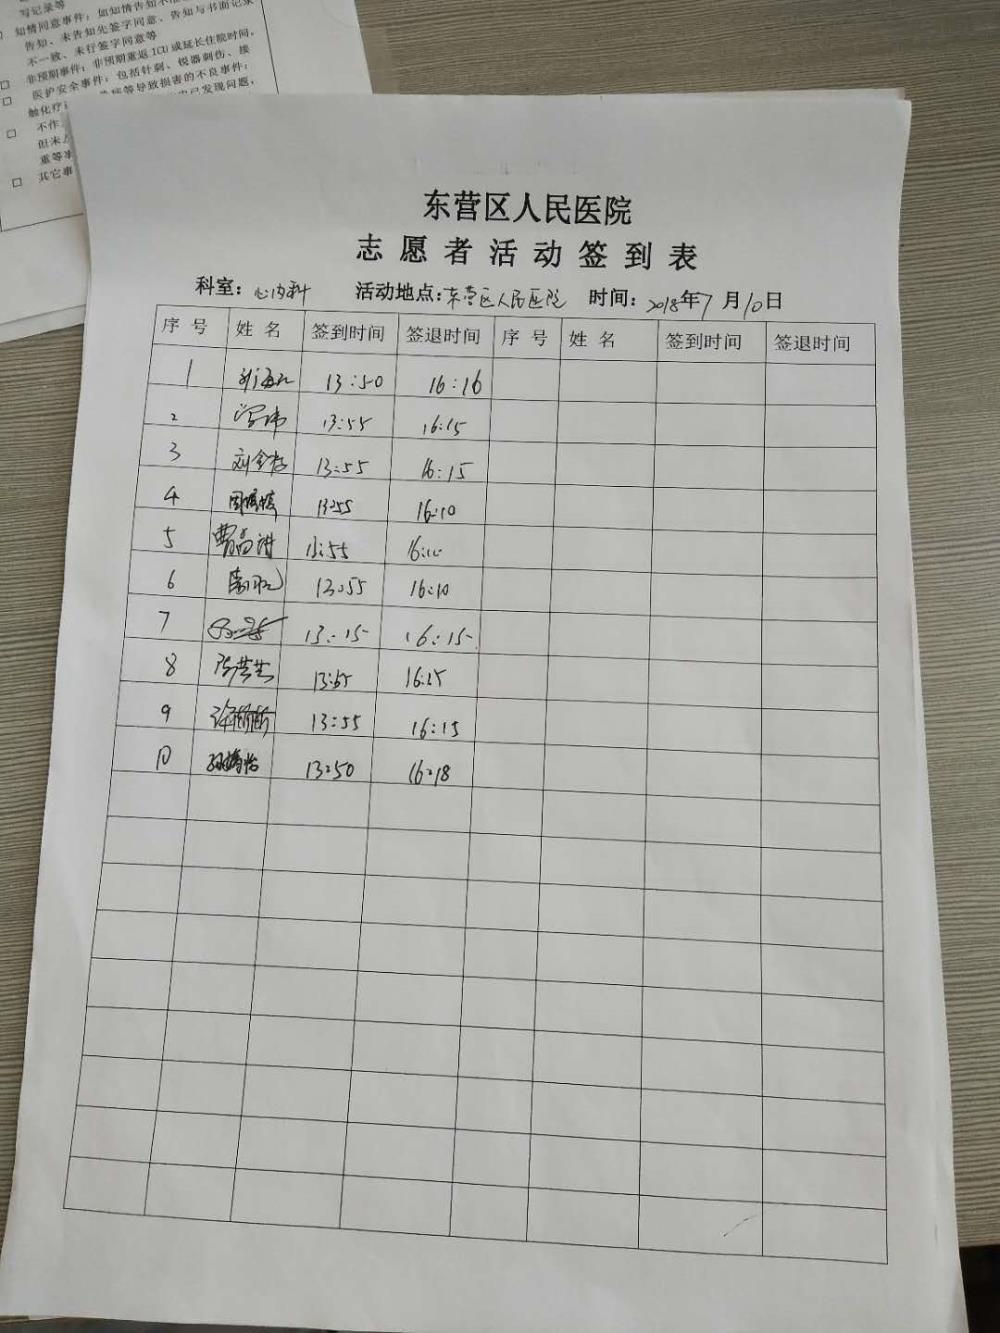 写记录等
知情同意事件：如知情告知不
告知、未告知先签字同意、告知与书面记录
不一致、未行签字同意等
非预期事件：非预期重返ICU或延长住院时间，
医护安全事件：包括针刺、锐器刺伤、接
触化疗 等导致损害的不良事件；
不作 已发现问题，
但未
重等事
其它事
东营区人民医院
志愿者活动签到表
科室：心内科 活动地点：东营区人民医院 时间：2018年7月10日
序号 姓名 签到时间 签退时间 序号 姓名 签到时间 签退时间
1 13:50 16:16
2 13:55 16:15
3 13:55 16:15
4 13:55 16:10
5 曹高祥 13:55 16:10
6 13:55 16:10
7 13:15 16:15
8 13:55 16:15
9 13:55 16:15
10 13:50 16:18